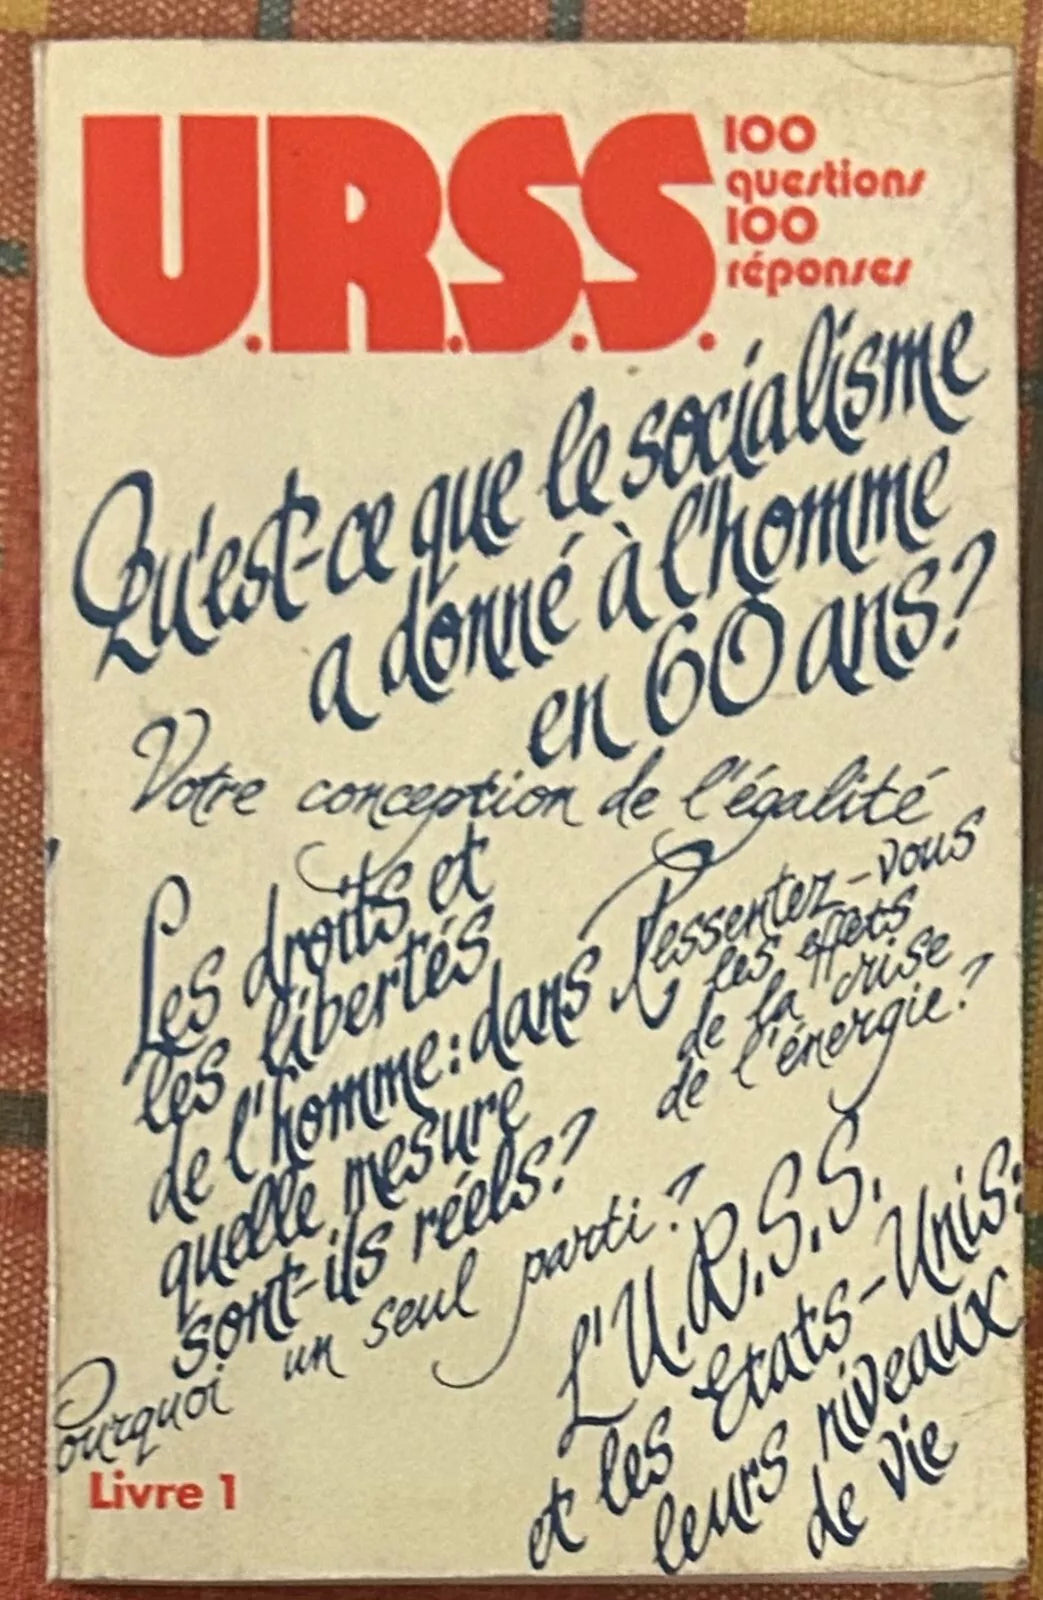 U.R.S.S.
100
questions
100
réponses
Qu'est-ce que le socialisme
a donné à l'homme
en 60 ans?
Votre conception de l'égalité
Les droits et
les libertés
de l'homme: dans
quelle mesure
sont-ils réels?
Ressentez-vous
les effets
de la crise
de l'énergie?
Pourquoi un seul parti?
L'U.R.S.S.
et les Etats-Unis:
leurs niveaux
de vie
Livre 1